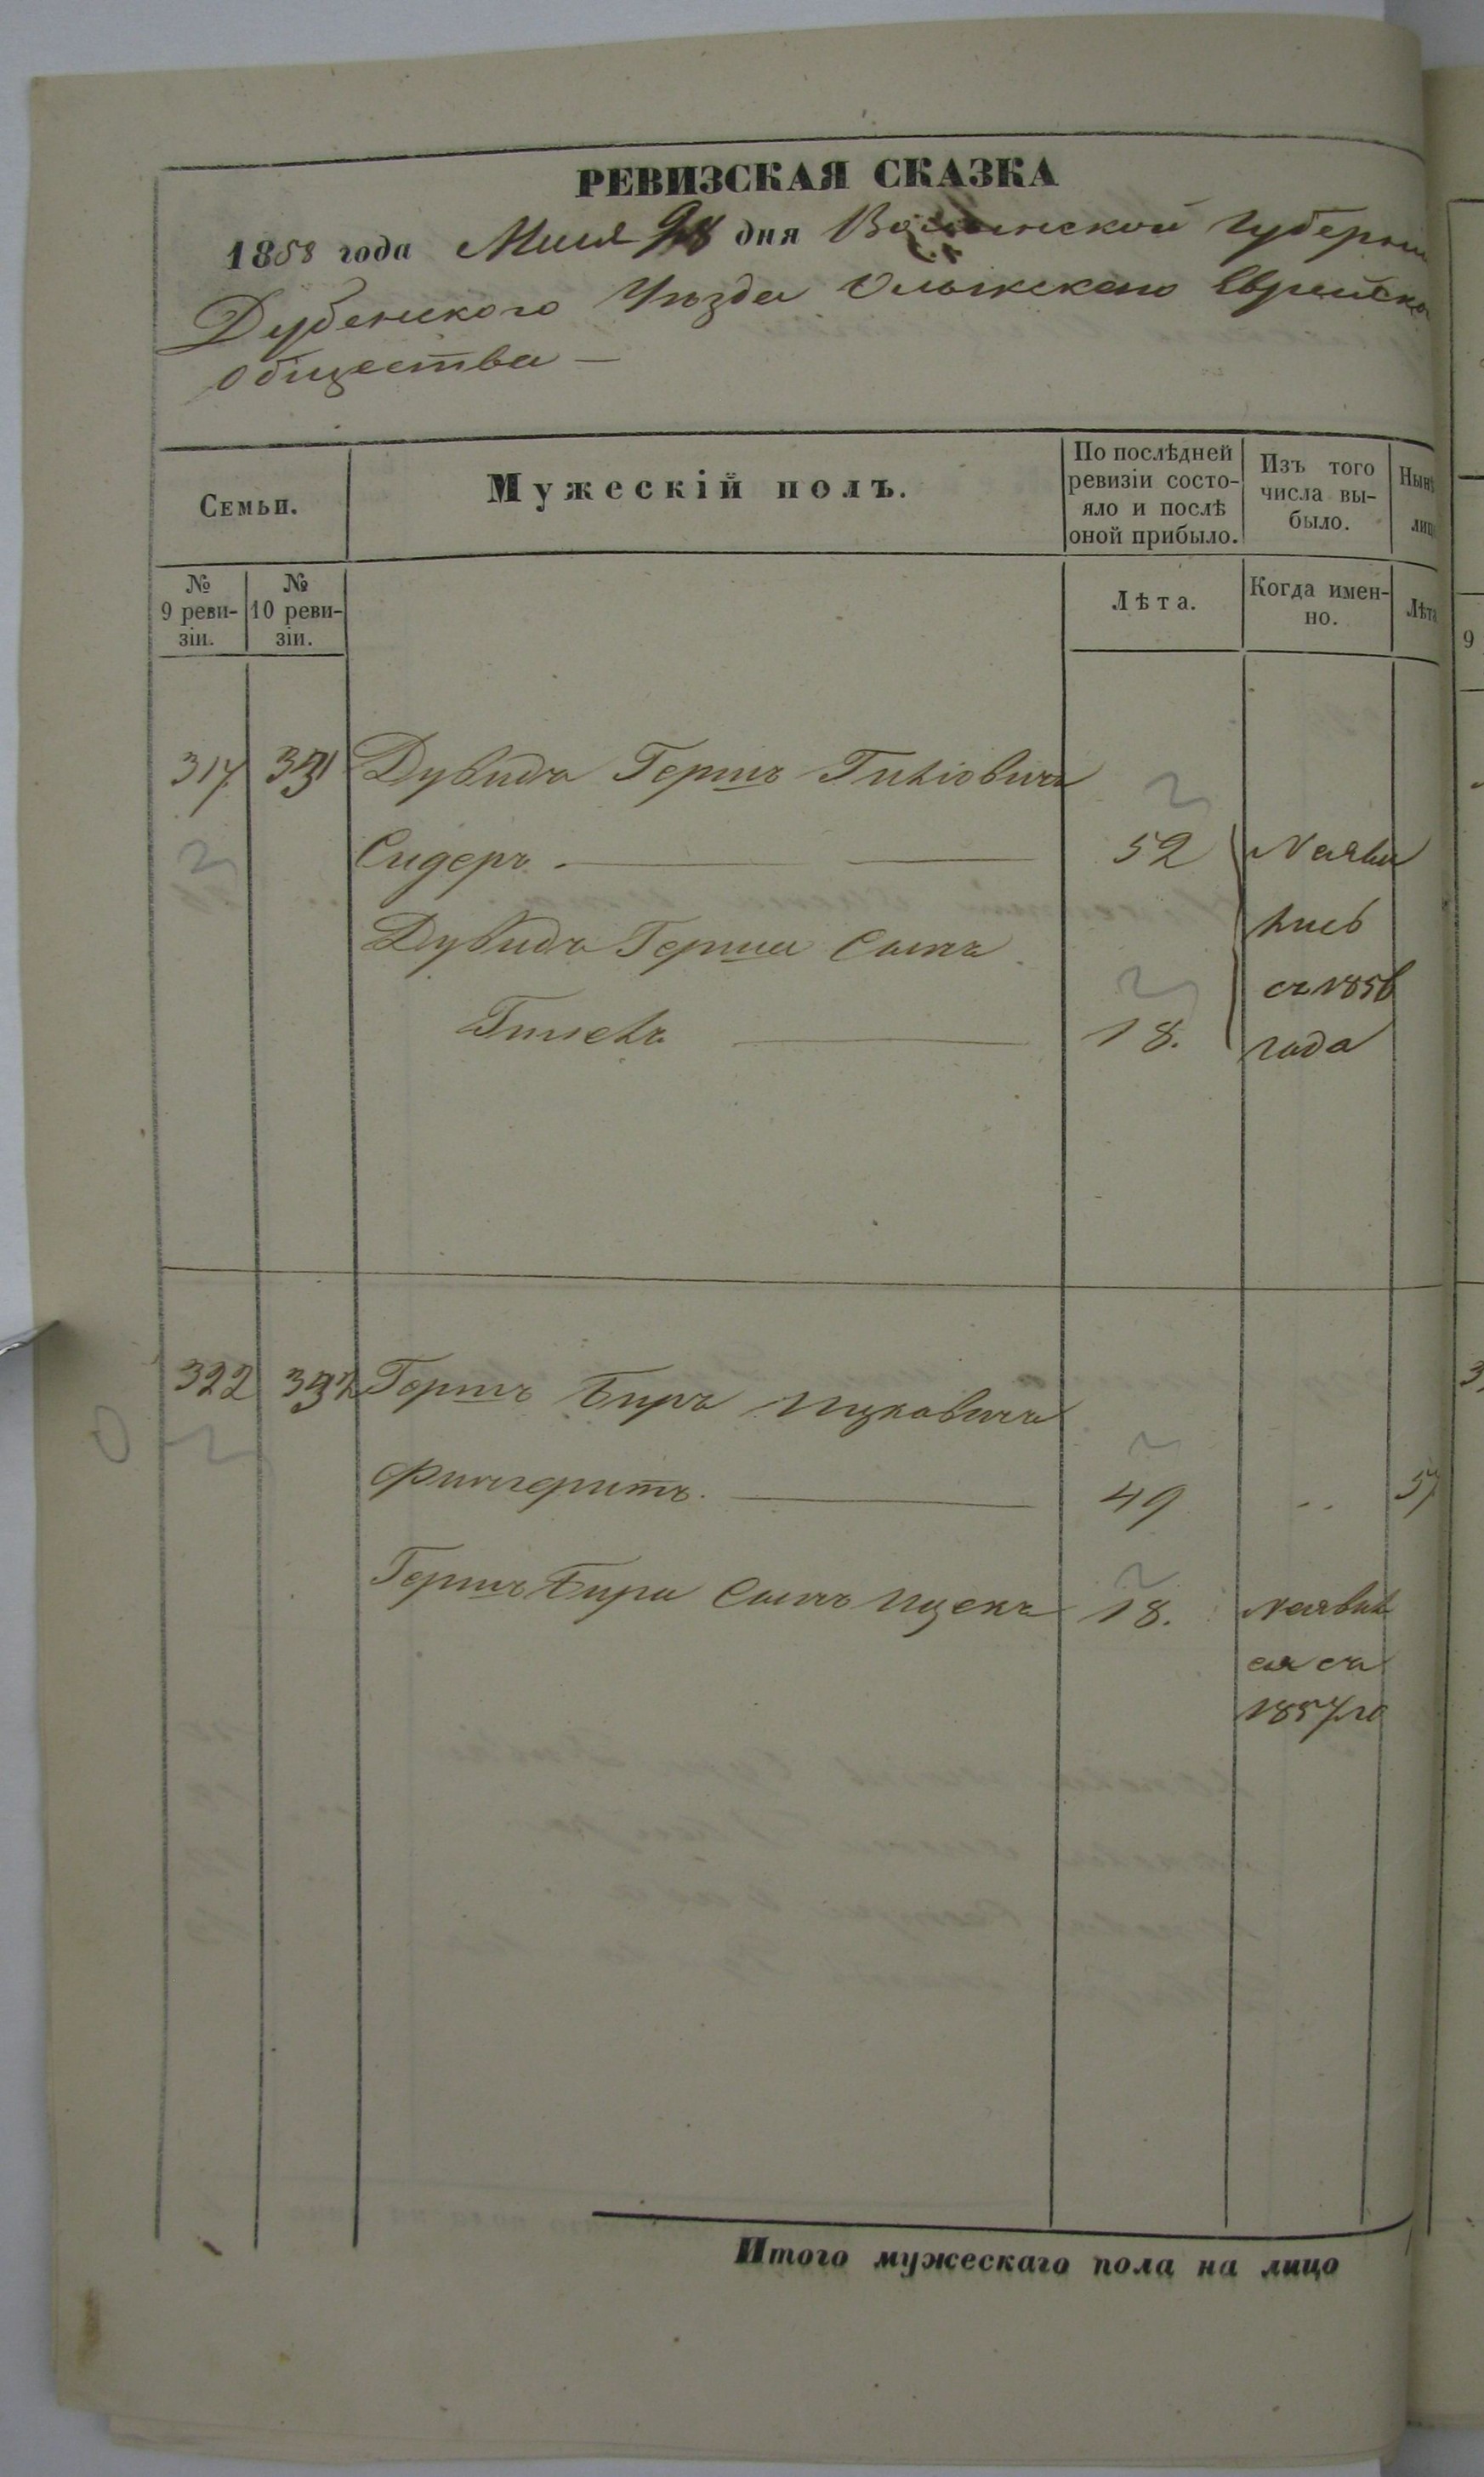 РЕВИЗСКАЯ СКАЗКА
1858 года Маия дня Волынской Губерніи
Дубенского Уѣзда Олыкского Еврейско
общества —
Семьи.
Мужескій полъ.
По послѣдней
ревизіи состо-
яло и послѣ
оной прибыло.
Изъ того
числа вы-
было.
Нынѣ
лицо
№
9 реви-
зіи.
№
10 реви-
зіи.
Лѣта.
Когда имен-
но.
Лѣта
9
317
Дувидъ Гершъ
Сидеръ. 52 Неяви
лись
Дувидъ Герша Сынъ
съ 1856
18. года
322 Гершъ Беръ Ицковичъ
Фингеритъ. 49 57
Гершъ Бера Сынъ Ицекъ 18. Неявил
ся съ
1857 го
Итого мужескаго пола на лицо